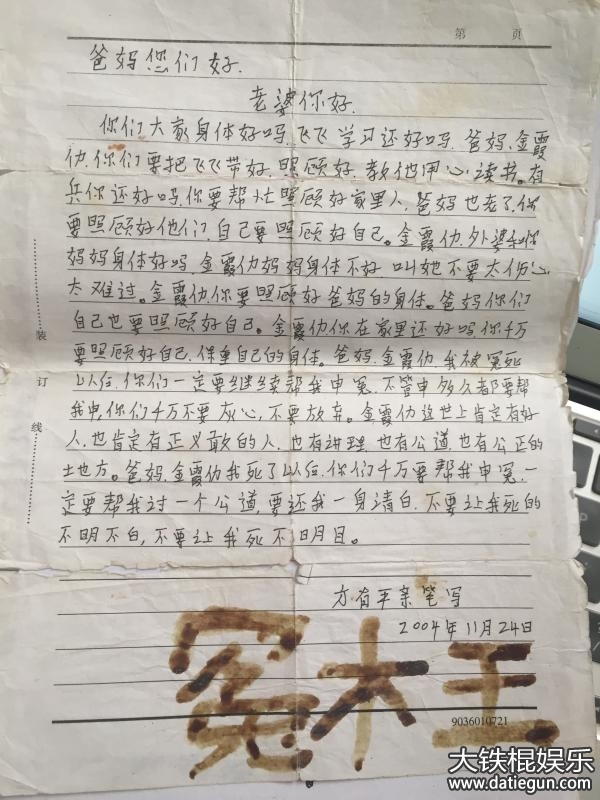 第 页
爸妈您们好.
老婆你好.
你们大家身体好吗,飞飞学习还好吗.爸妈.金霞
仂,你们要把飞飞带好.照顾好.教他用心读书。有
兵你还好吗,你要帮忙照顾好家里人,爸妈也老了,你
要照顾好他们,自己要照顾好自己。金霞仂,外婆和你
妈妈身体好吗,金霞仂妈妈身体不好 叫她不要太伤心
太难过。金霞仂你要照顾好爸妈的身体。爸妈你们
自己也要照顾好自己。金霞仂你在家里还好吗你千万
要照顾好自己.保重自己的身体。爸妈.金霞仂.我被冤死
以位.你们一定要继续帮我申冤.不管申多久都要帮
我申,你们千万不要灰心,不要放弃。金霞仂这世上肯定有好
人.也肯定有正义敢的人.也有讲理.也有公道.也有公正的
土地方。爸妈.金霞仂我死了以位.你们千万要帮我申冤,一
定要帮我讨一个公道,要还我一身清白.不要让我死的
不明不白,不要让我死不明目。
方有平亲笔写
2004年11月24日
冤枉
9036010721
装
订
线
大铁棍娱乐
www.datiegun.com